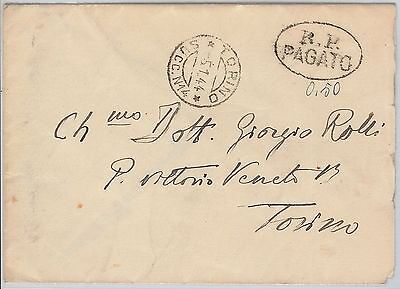 TORINO
5.1.44
SUCC. N14
R. P.
PAGATO
0.50
Ch mo Dott. Giorgio Rolli
P. Vittorio Veneto 13
Torino